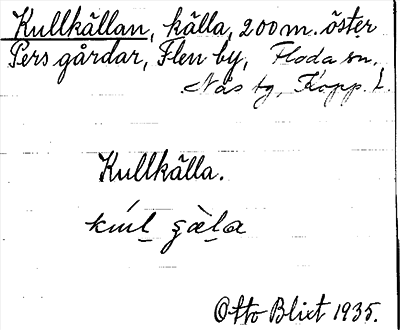 Kullkällan, källa, 200 m. öster
Pers gårdar, Flen by, Floda sn.
Nås tg, Kopp. l.
Kullkälla.
Otto Blixt 1935.